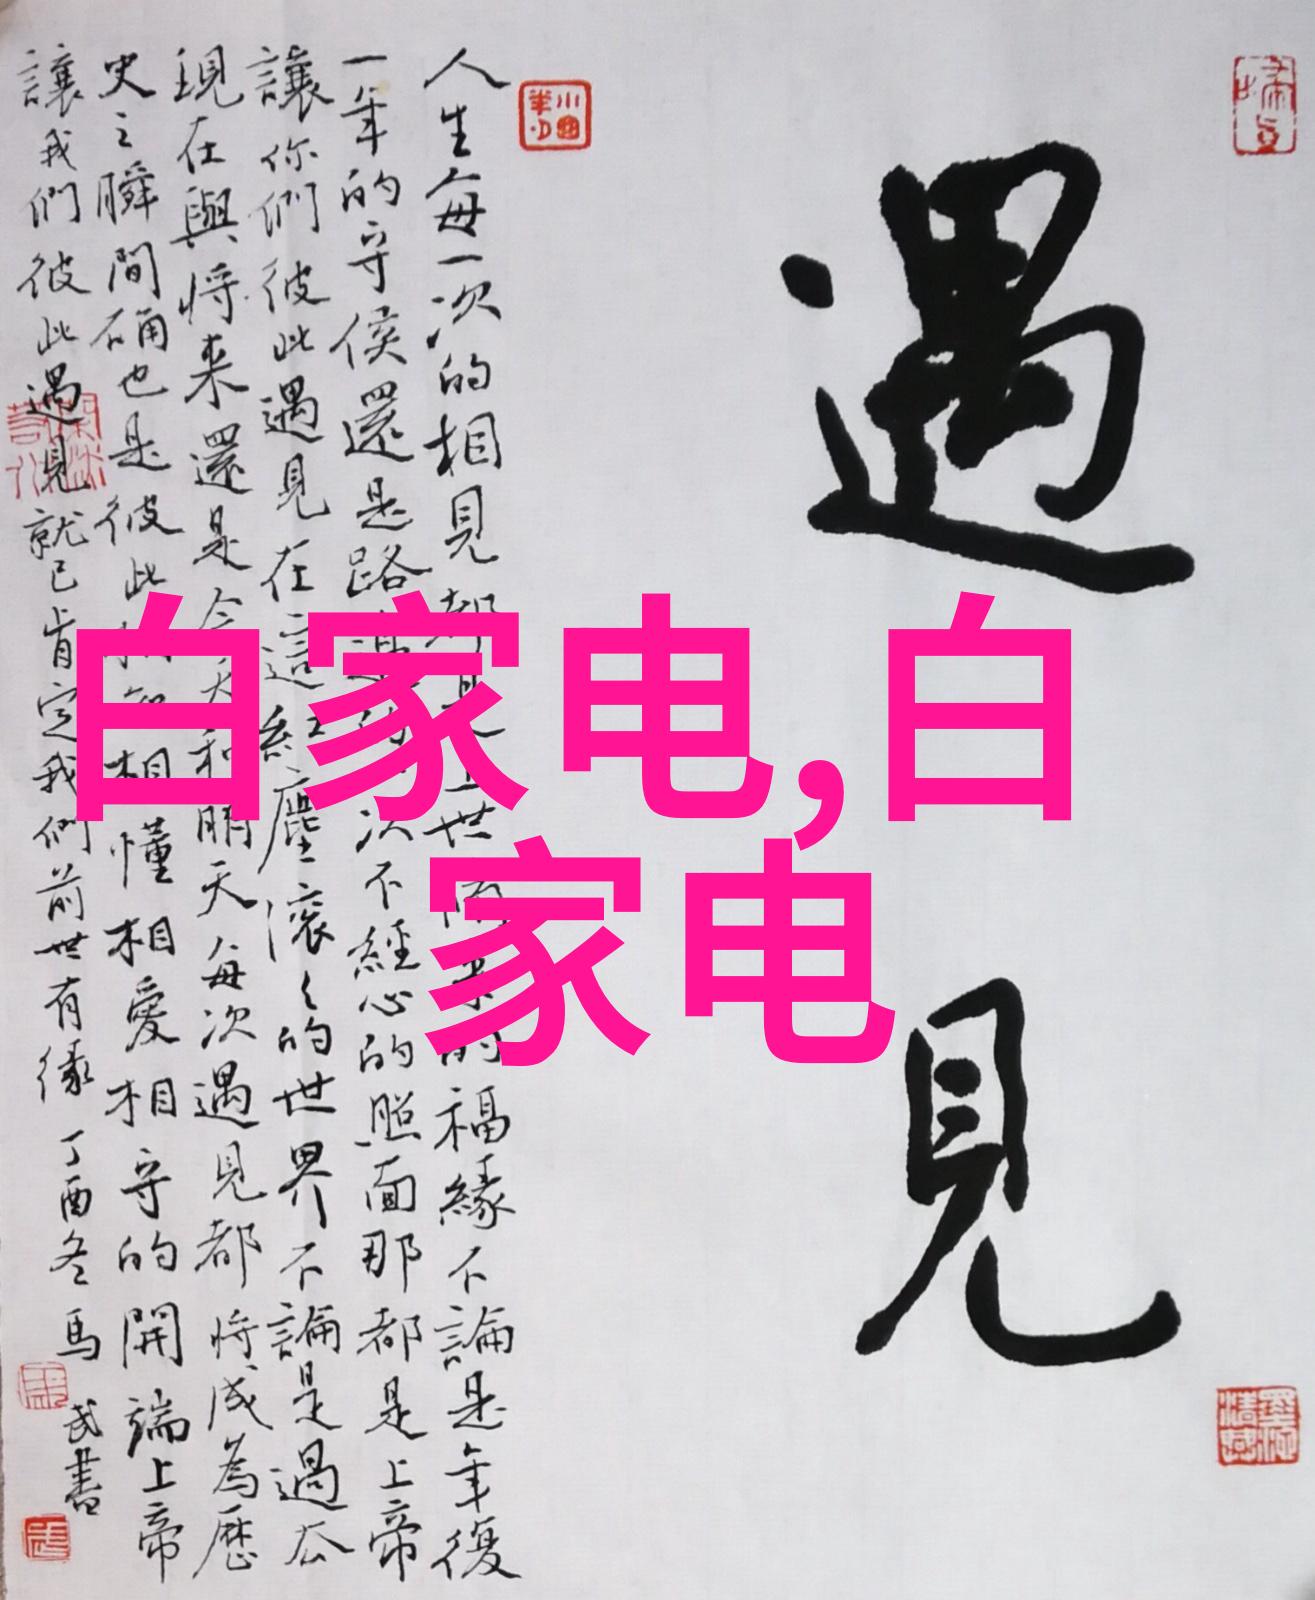 白家电,白
家电
遇見
人生每一次的相見都是上世的福緣不論是年復
一年的守侯還是路過的次不經心的照面那都是上帝
讓你們彼此遇見在這紅塵滚々的世界不論是過去
現在與将来還是今天和明天每次遇見都将成為歷
史之瞬間确也是彼此相知相懂相愛相守的開端上帝
讓我們彼此遇見就已肯定我們前世有缘 丁酉冬馬武書